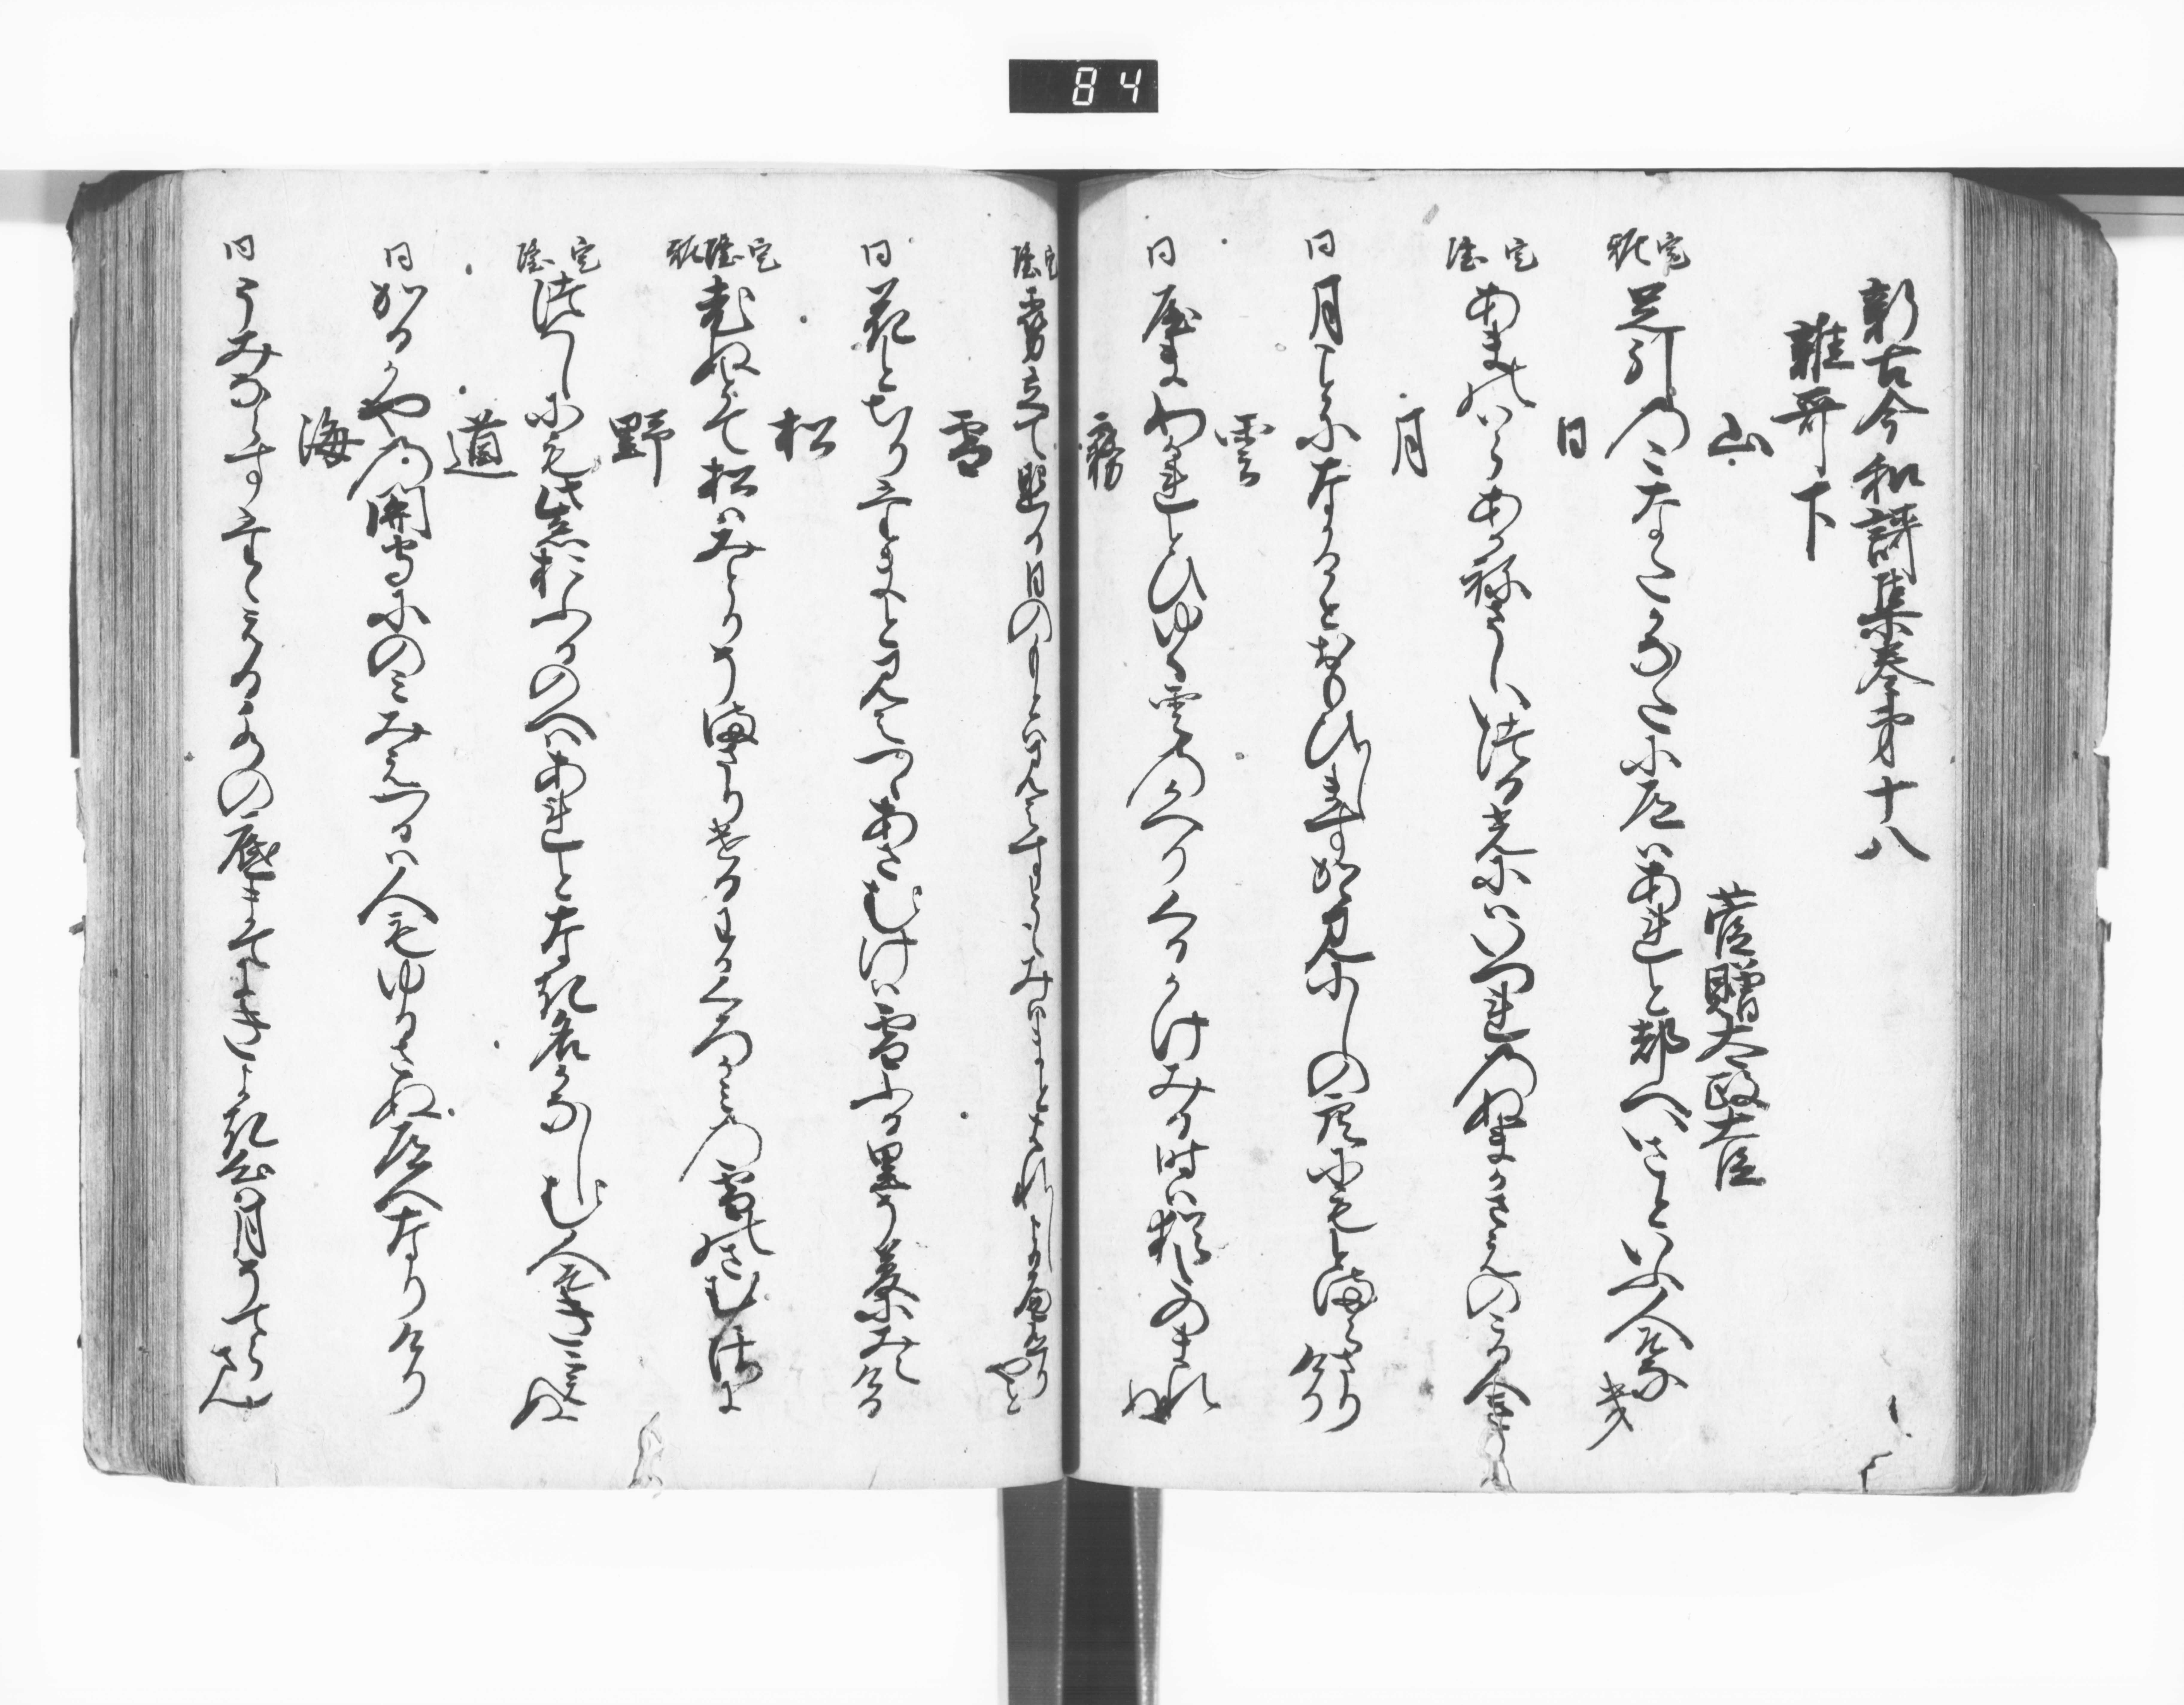 84
新古今和謌集巻第十八
雑哥下
山
菅贈太政大臣
定 雅
足引のこなたかなたに道はあれと都へいさといふ人そなき
日
定 隆
あまのはらあかねさしいつる光にはいつれのぬまかさえのこるへき
月
同
月ことになかるとおもひしますかゝ見にしの宮にもとまらさりけり
雲
同
山わかれとひゆく雲のかへりくるかけみる時は猶たのまれぬ
霧
定 隆
霧立て照日のもとは見えすとも身はまとはれしよるへありやと
雪
同
花とちり玉とまかひて
松
定 隆 雅
老ぬとて松はみとりそまさりけるわかくろかみの雪のさむさに
野
定 隆
つくしにも紫おふる野へはあれとなき名かなしむ人そきこえぬ
道
同
かるかやの関守にのみみえつるは人もゆるさぬ道へなりけり
海
同
うみならすたゝへる水の底まてにきよき心は月そてらさん